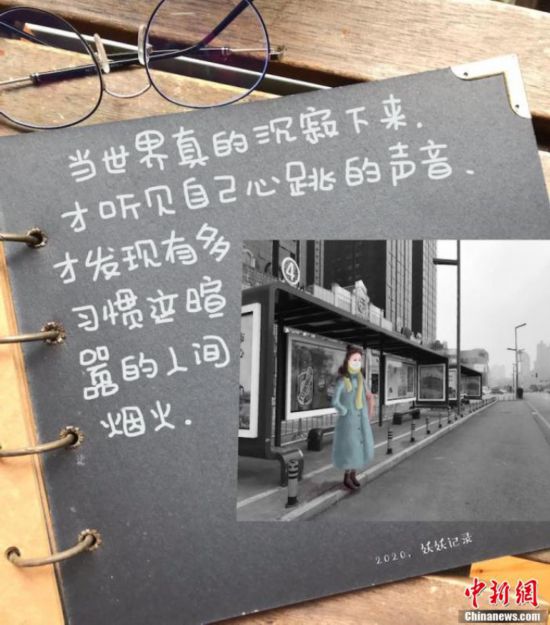 当世界真的沉寂下来.
才听见自己心跳的声音.
才发现有多
习惯这喧
嚣的人间
烟火.
④
2020，妖妖记录
中新網
Chinanews.com